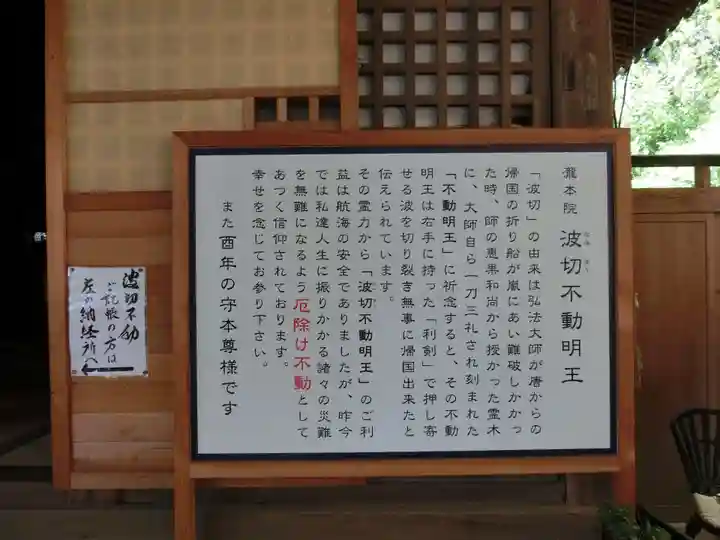 瀧本院 波切不動明王
「波切」の由来は弘法大師が唐からの
帰国の折り船が嵐にあい難破しかかっ
た時、師の恵果和尚から授かった霊木
に、大師自ら一刀三礼され刻まれた
「不動明王」に祈念すると、その不動
明王は右手に持った「利剣」で押し寄
せる波を切り裂き無事に帰国出来たと
伝えられています。
その霊力から「波切不動明王」のご利
益は航海の安全でありましたが、昨今
では私達人生に振りかかる諸々の災難
を無難になるよう厄除け不動として
あつく信仰されております。
幸せを念じてお参り下さい。
また酉年の守本尊様です
波切不動
ご記帳の方は
左の納経所へ